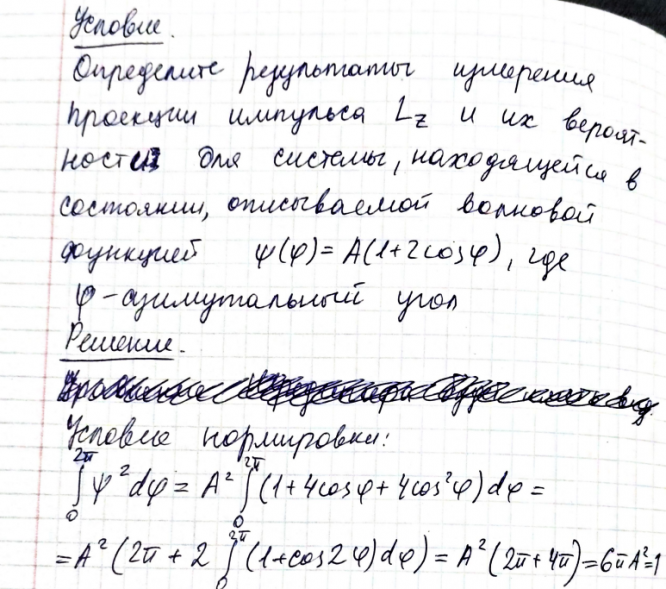 Условие.
Определите результаты измерения
проекции импульса L_z и их вероят-
ности для системы, находящейся в
состоянии, описываемой волновой
функцией ψ(φ) = A(1+2cosφ), где
φ - азимутальный угол
Решение.
Условие нормировки:
∫₀^{2π} ψ² dφ = A² ∫₀^{2π} (1+4cosφ+4cos²φ) dφ =
= A² (2π + 2 ∫₀^{2π} (1+cos2φ) dφ) = A² (2π+4π) = 6πA² = 1